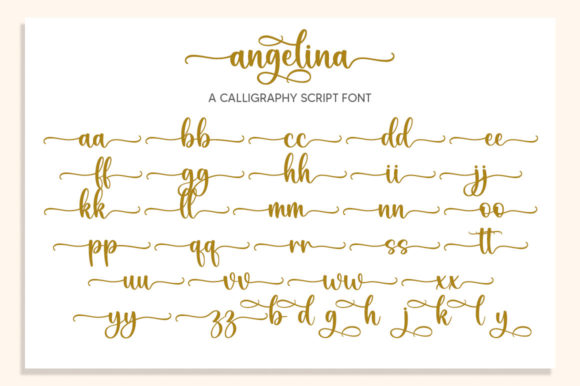 angelina
A CALLIGRAPHY SCRIPT FONT
aa bb cc dd ee
ff gg hh ii jj
kk ll mm nn oo
pp qq rr ss tt
uu vv ww xx
yy zz b d g h j k l y